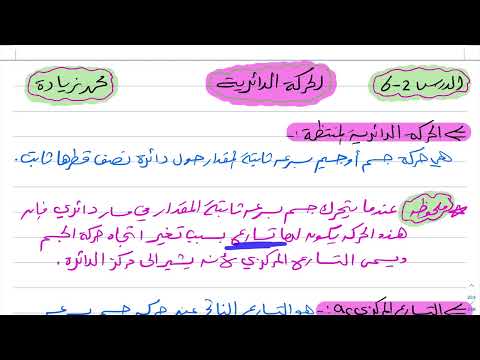 الدرس 2-6
الحركة الدائرية
محمد زيادة
الحركة الدائرية المنتظمة :-
هي حركة جسم أو جسيم بسرعة ثابتة المقدار حول دائرة نصف قطرها ثابت.
ملحوظة عندما يتحرك جسم بسرعة ثابتة المقدار في مسار دائري فإن
هذه الحركة يكون لها تسارع بسبب تغير اتجاه حركة الجسم
ويسمى التسارع المركزي لأنه يشير الى مركز الدائرة.
التسارع المركزي ac :- هو التسارع الناتج عن حركة جسم بسرعة